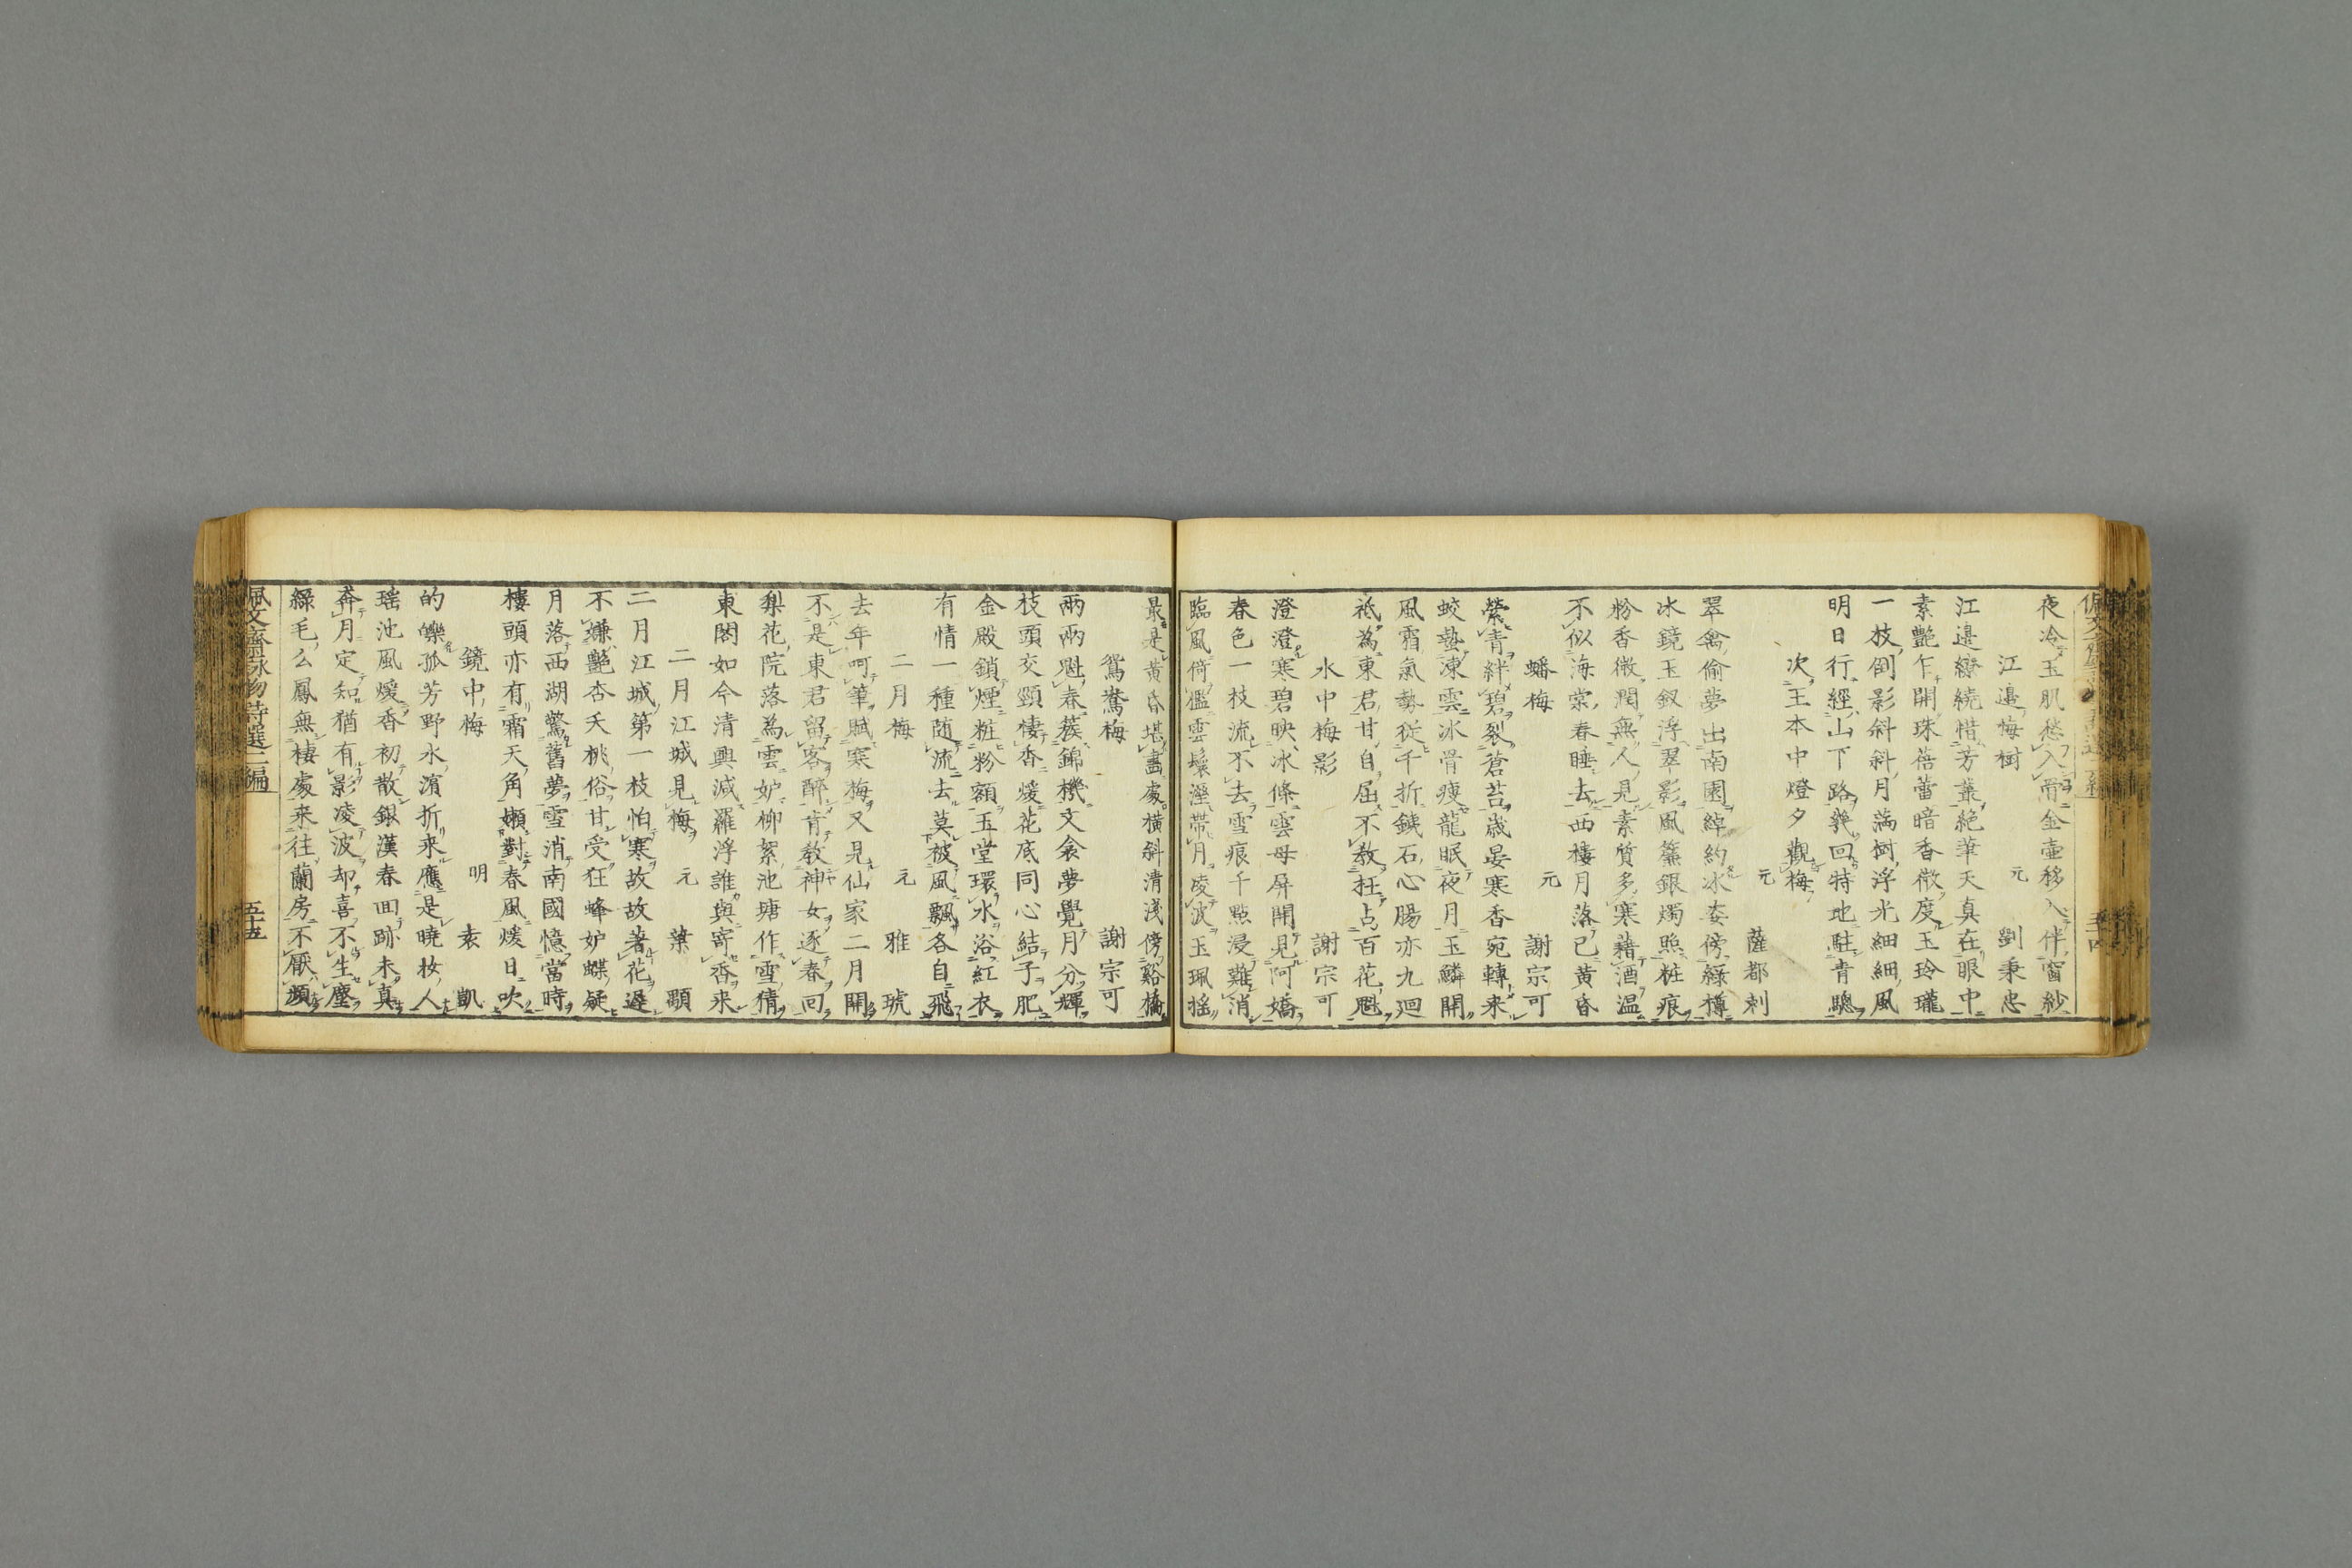 夜冷玉肌愁入帶金壺移入伴窗紗
江邉梅樹 元 劉秉忠
江邉繚繞惜芳叢絶華天真在眼中
素艷乍開珠蓓蕾暗香微度玉玲瓏
一枝倒影斜斜月滿樹浮光細細風
明日行經山下路幾回特地駐青驄
次王本中燈夕觀梅
元 薩都剌
翠禽偷夢出南園綽約冰姿傍緑樽
冰鏡玉釵浮翠影風簾銀燭照粧痕
粉香微潤無人見素質多寒藉酒温
不似海棠春睡去西樓月落已黄昏
蟠梅 元 謝宗可
縈青絆碧裂蒼苔歳晏寒香宛轉来
蛟蟄凍雲冰骨瘦龍眠夜月玉鱗開
風霜氣勢従千折鐵石心腸亦九迴
祗為東君甘自屈不教抂占百花魁
水中梅影 謝宗可
澄澄寒碧映冰條雲母屏開見阿嬌
春色一枝流不去雪痕千點浸難消
臨風倚檻雲鬟溼帶月凌波玉珮揺
最是黄昏堪畫處橫斜清淺傍谿橋
鴛鴦梅 謝宗可
兩兩魁春蔟錦機文衾夢覺月分輝
枝頭交頸棲香煖花底同心結子肥
金殿鎖煙粧粉額玉堂環水浴紅衣
有情一種随流去莫被風飄各自飛
二月梅 元 雅琥
去年呵筆賦寒梅又見仙家二月開
不是東君留客醉肯教神女逐春回
梨花院落為雲妒柳絮池塘作雪猜
東閣如今清興減羅浮誰與寄香来
二月江城見梅 元 葉顒
二月江城第一枝怕寒故故著花遲
不嫌艷杏夭桃俗甘受狂蜂妒蝶疑
月落西湖驚舊夢雪消南國憶當時
樓頭亦有霜天角嬾對春風煖日吹
鏡中梅 明 袁凱
的皪孤芳野水濱折来應是曉妝人
瑶池風煖香初散銀漢春回跡未真
奔月定知猶有影凌波却喜不生塵
緑毛么鳳無棲處来往蘭房不厭頻
佩文齋詠物詩選二編 五十五